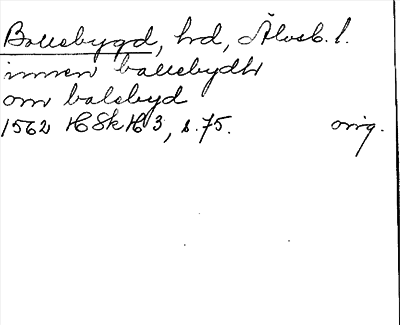 Bollebygd, hd, Älvsb. l.
innen bollebydh
om balebyd
1562 HSkH 3, s. 75. orig.